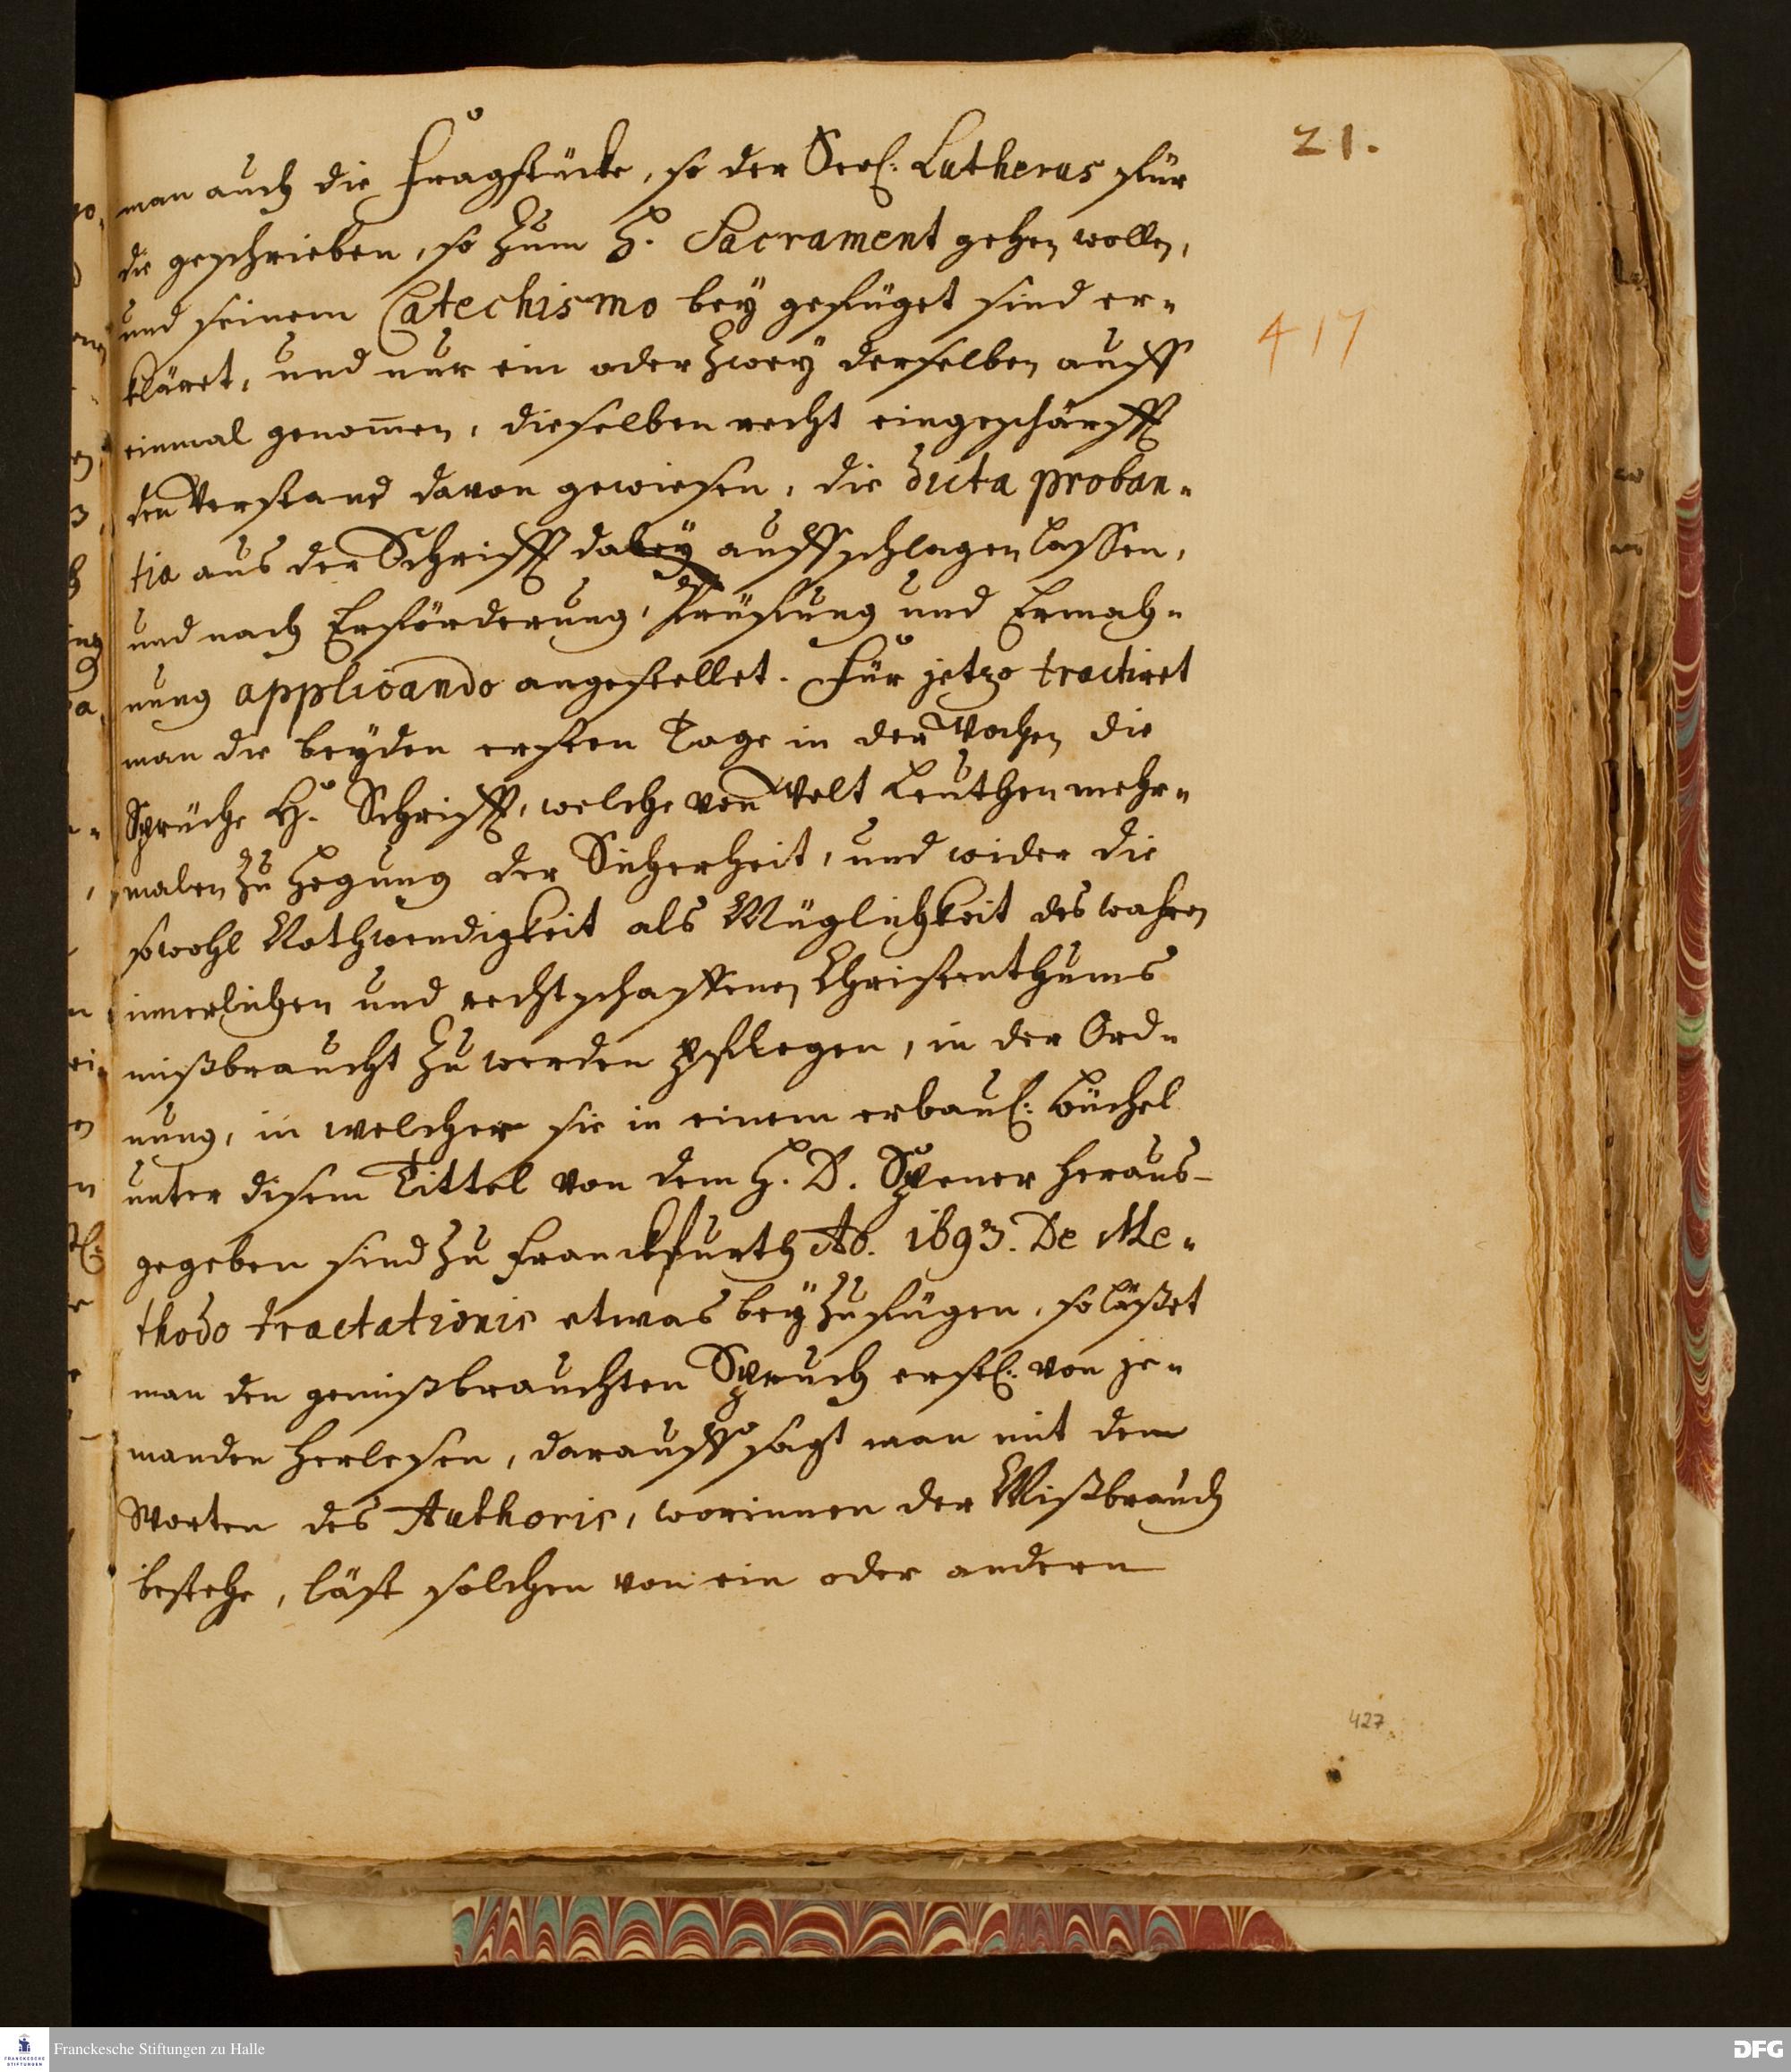 21.
man auch die Fragstücke, so der Seel: Lutherus für
die geschrieben, so zum H. Sacrament gehen wollen,
417
und seinem Catechismo bey gefüget sind er-
kläret, und nur ein oder zwey derselben auff
einmal genom̄en, dieselben recht eingeschärfft
den Verstand davon gewiesen, die dicta proban-
tia aus der Schrifft dabey auffschlagen lassen,
und nach Erförderung, der Prüfung und Ermah-
nung applicando angestellet. Für jetzo tractiret
man die beyden ersten Tage in der Wochen die
Sprüche H. Schrifft, welche von Welt Leuthen mehr-
malen zu Hegung der Sicherheit, und wider die
sowohl Nothwendigkeit als Müglichkeit des wahren
innerlichen und rechtschaffenen Christenthums
mißbraucht zu werden pflegen, in der Ord-
nung, in welcher sie in einem erbaul: Büchel
unter disem Tittel von dem H. D. Spener heraus-
gegeben sind zu Franckfurth Ao. 1693. De Me-
thodo tractationis etwas bey zufügen, so läßet
man den gemißbrauchten Spruch erstl: von je-
manden herlesen, darauff sagt man mit dem
Worten des Authoris, worinnen der Mißbrauch
bestehe, läst solchen von ein oder andern
427
Franckesche Stiftungen zu Halle
DFG